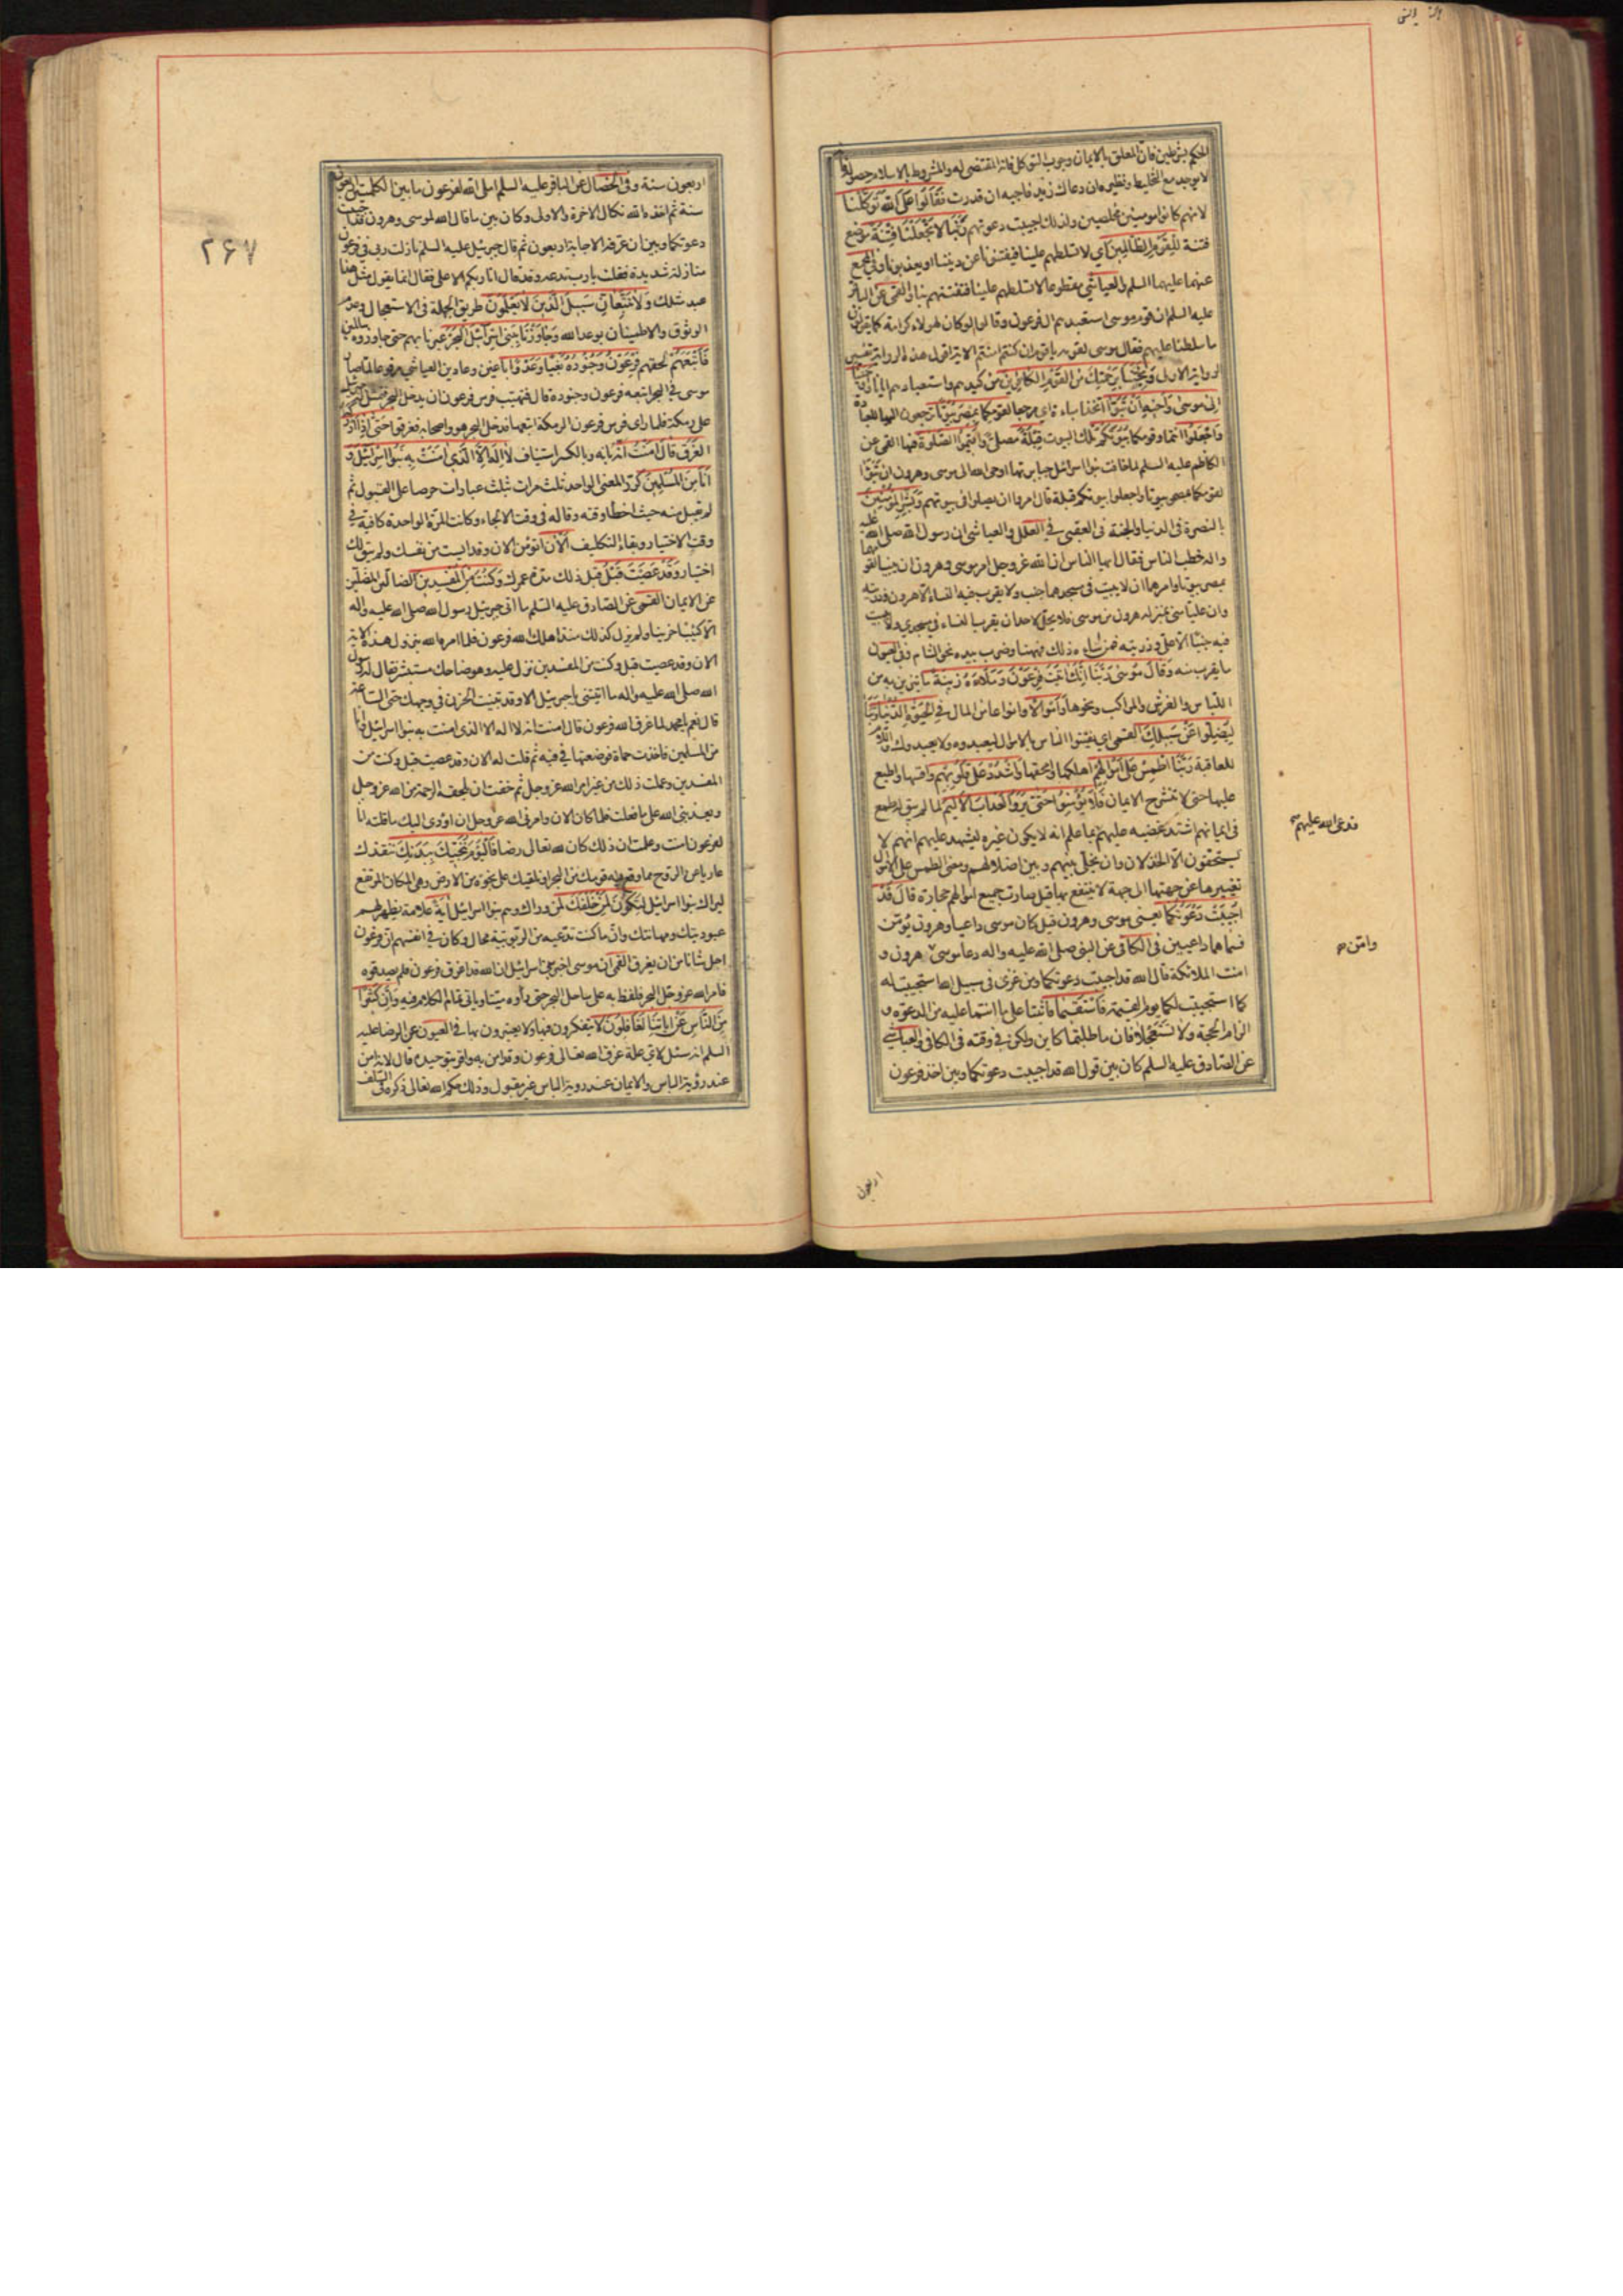 الحكم بشرطين فان المعلق بالايمان وجوب التوكل فانه المقتضى له والمشروط بالاسلام حصوله فانه
لا يوجد مع التخليط ونظيره ان دعاك زيد فاجبه ان قدرت فَقَالُوا عَلَى اللهِ تَوَكَّلْنَا
لانهم كانوا مؤمنين مخلصين ولذلك اجيبت دعوتهم رَبَّنَا لا تَجْعَلْنَا فِتْنَةً موضع
فتنة لِلْقَوْمِ الظَّالِمِينَ اي لا تسلطهم علينا فيفتنونا عن ديننا او يعذبونا وفي المجمع
عنهما عليهما السلم والعياشي مقطوعا لا تسلطهم علينا فتفتنهم بنا والقمي عن الباقر
عليه السلم ان قوم موسى استعبدهم ال فرعون وقالوا لو كان لهولاء كرامة كما يقولون
ما سلطنا عليهم فقال موسى لقومه يا قوم ان كنتم امنتم الاية اقول هذه الرواية تفسير
الرواية الاولى وَنَجِّنَا بِرَحْمَتِكَ مِنَ الْقَوْمِ الْكَافِرِينَ من كيدهم واستعبادهم ايانا وَاَوْحَيْنَا
اِلى مُوسى وَاَخِيهِ اَنْ تَبَوَّآ اتخذا مباءة اي مرجعا لقومكما بِمِصْرَ بُيُوتًا ترجعون اليها للعبادة
وَاجْعَلُوا انتما وقومكما بُيُوتَكُمْ تلك البيوت قِبْلَةً مصلى وَاَقِيمُوا الصَّلوةَ فيها القمي عن
الكاظم عليه السلم لما خافت بنو اسرائيل جبابرتها اوحى الله الى موسى وهرون ان تبوّا
لقومكما بمصر بيوتا واجعلوا بيوتكم قبلة قال امروا ان يصلوا في بيوتهم وَبَشِّرِ الْمُؤْمِنِينَ
بالنصرة في الدنيا والجنة في العقبى في العلل والعياشي ان رسول الله صلى الله عليه
واله خطب الناس فقال ايها الناس ان الله عز وجل امر موسى وهرون ان يبنيا لقومهما
بمصر بيوتا وامرهما ان لا يبيت في مسجدهما جنب ولا يقرب فيه النساء الا هرون وذريته
وان عليا مني بمنزلة هرون من موسى فلا يحل لاحد ان يقرب النساء في مسجدي ولا يبيت
فيه جنبا الا علي وذريته فمن شاء ذلك فههنا وضرب بيده نحو الشام وفي العيون
ما يقرب منه وَقَالَ مُوسى رَبَّنَا اِنَّكَ اتَيْتَ فِرْعَوْنَ وَمَلَاَهُ زِينَةً ما يتزين به من
اللباس والفرش والمراكب ونحوها وَاَمْوَالًا وانواعا من المال فِي الْحَيوةِ الدُّنْيَا رَبَّنَا
لِيُضِلُّوا عَنْ سَبِيلِكَ القمي اي يفتنوا الناس بالاموال ليعبدوه ولا يعبدوك واللام
للعاقبة رَبَّنَا اطْمِسْ عَلى اَمْوَالِهِمْ اهلكها وامحقها وَاشْدُدْ عَلى قُلُوبِهِمْ واقسها واطبع
عليها حتى لا تنشرح للايمان فَلا يُؤْمِنُوا حَتّى يَرَوُا الْعَذَابَ الْاَلِيمَ لما لم يبق له طمع
في ايمانهم اشتد غضبه عليهم بما علم انه لا يكون غيره ليشهد عليهم انهم لا
يستحقون الا الخذلان وان يخلى بينهم وبين اضلالهم ومعنى الطمس على الاموال
تغييرها عن جهتها الى جهة لا ينتفع بها قيل صارت جميع اموالهم حجارة قَالَ قَدْ
اُجِيبَتْ دَعْوَتُكُمَا يعني موسى وهرون قيل كان موسى داعيا وهرون يؤمن
فسماهما داعيين في الكافي عن النبي صلى الله عليه واله دعا موسى هرون و
امنت الملائكة قال الله قد اجيبت دعوتكما ومن غزى في سبيل الله استجيبت له
كما استجيبت لكما يوم القيمة فَاسْتَقِيمَا فاثبتا على ما انتما عليه من الدعوة و
الزام الحجة ولا تستعجلا فان ما طلبتما كاين ولكن في وقته في الكافي والعياشي
عن الصادق عليه السلم كان بين قول الله قد اجيبت دعوتكما وبين اخذ فرعون
فدعى الله عليهم
وامن
اربعون
۲۶۷
اربعون سنة وفي الخصال عن الباقر عليه السلم املى الله لفرعون ما بين الكلمتين اربعون
سنة ثم اخذه الله نكال الاخرة والاولى وكان بين ما قال الله لموسى وهرون قد اجيبت
دعوتكما وبين ان عرفه الاجابة اربعون ثم قال جبرئيل عليه السلم نازلت ربي في فرعون
منازلة شديدة فقلت يا رب تدعه وقد قال انا ربكم الاعلى فقال انما يقول مثل هذا
عبد مثلك وَلا تَتَّبِعَانِّ سَبِيلَ الَّذِينَ لا يَعْلَمُونَ طريق الجهلة في الاستعجال وعدم
الوثوق والاطمينان بوعد الله وَجَاوَزْنَا بِبَنِي اِسْرَائِيلَ الْبَحْرَ عبرنا بهم حتى جاوزوه سالمين
فَاَتْبَعَهُمْ لحقهم فِرْعَوْنُ وَجُنُودُهُ بَغْيًا وَعَدْوًا باغين وعادين العياشي مرفوعا لما صار
موسى في البحر اتبعه فرعون وجنوده قال فتهيب فرس فرعون ان يدخل البحر فتمثل له جبرئيل
على رمكة فلما راى فرس فرعون الرمكة اتبعها فدخل البحر هو واصحابه فغرقوا حَتّى اِذَا اَدْرَكَهُ
الْغَرَقُ قَالَ امَنْتُ اَنَّهُ بانه وبالكسر استيناف لا اِلهَ اِلَّا الَّذِي امَنَتْ بِهِ بَنُوا اِسْرَائِيلَ وَ
اَنَا مِنَ الْمُسْلِمِينَ كرر المعنى الواحد ثلث مرات بثلث عبارات حرصا على القبول ثم
لم يقبل منه حيث اخطا وقته وقاله في وقت الالجاء وكانت المرة الواحدة كافية في
وقت الاختيار وبقاء التكليف آلْآنَ اتؤمن الان وقد ايست من نفسك ولم يبق لك
اختيار وَقَدْ عَصَيْتَ قَبْلُ قبل ذلك مدة عمرك وَكُنْتَ مِنَ الْمُفْسِدِينَ الضالين المضلين
عن الايمان القمي عن الصادق عليه السلم ما اتى جبرئيل رسول الله صلى الله عليه واله
الا كئيبا حزينا ولم يزل كذلك منذ اهلك الله فرعون فلما امره الله بنزول هذه الاية
الان وقد عصيت قبل وكنت من المفسدين نزل عليه وهو ضاحك مستبشر فقال له رسول
الله صلى الله عليه واله ما اتيتني يا جبرئيل الا وقد تبينت الحزن في وجهك حتى الساعة
قال نعم يا محمد لما غرق الله فرعون قال امنت انه لا اله الا الذي امنت به بنوا اسرائيل وانا
من المسلمين فاخذت حماة فوضعتها في فيه ثم قلت له الان وقد عصيت قبل وكنت من
المفسدين وعملت ذلك من غير امر الله عز وجل ثم خفت ان يلحقه الرحمة من الله عز وجل
ويعذبني الله على ما فعلت فلما كان الان وامرني الله عز وجل ان اؤدي اليك ما قلته انا
لفرعون امنت وعلمت ان ذلك كان لله تعالى رضا فَالْيَوْمَ نُنَجِّيكَ بِبَدَنِكَ ننقذك
عاريا عن الروح مما وقع فيه قومك من البحر او نلقيك على نجوة من الارض وهي المكان المرتفع
ليراك بنوا اسرائيل لِتَكُونَ لِمَنْ خَلْفَكَ لمن وراك وهم بنوا اسرائيل ايَةً علامة يظهر لهم
عبوديتك ومهانتك وان ما كنت تدعيه من الربوبية محال وكان في انفسهم ان فرعون
اجل شانا من ان يغرق القمي ان موسى اخبر بني اسرائيل ان الله قد اغرق فرعون فلم يصدقوه
فامر الله عز وجل البحر فلفظ به على ساحل البحر حتى راوه ميتا وياتي تمام الكلام فيه وَاِنَّ كَثِيرًا
مِنَ النَّاسِ عَنْ ايَاتِنَا لَغَافِلُونَ لا يتفكرون فيها ولا يعتبرون بها في العيون عن الرضا عليه
السلم انه سئل لاي علة غرق الله تعالى فرعون وقد امن به واقر بتوحيده قال لانه امن
عند رؤية الباس والايمان عند رؤية الباس غير مقبول وذلك حكم الله تعالى ذكره في السلف